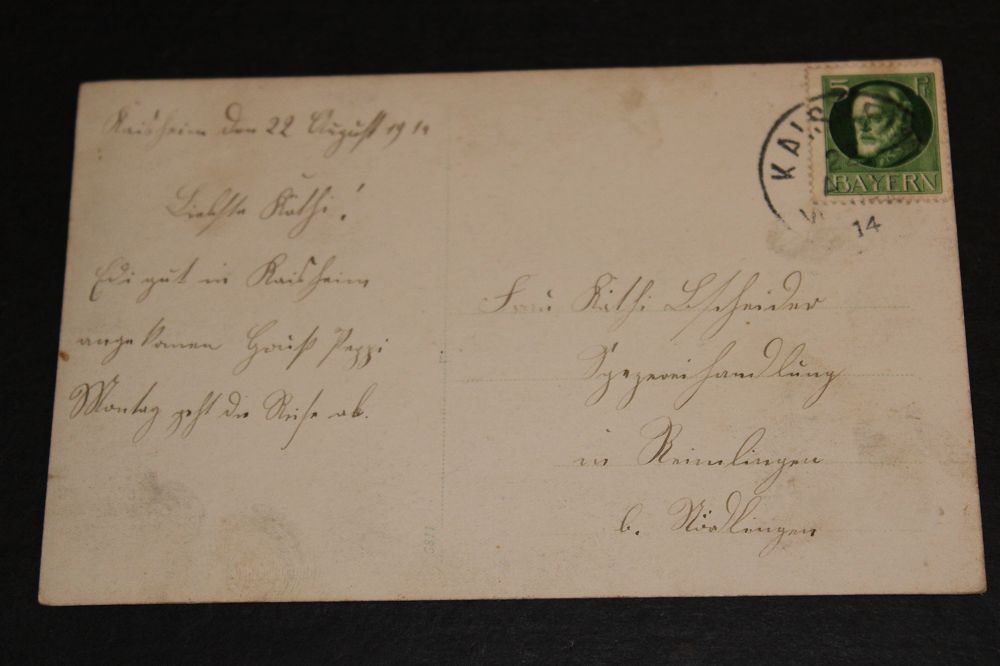 Kaisheim den 22 August 1914
Liebste Käthi!
Bi gut in Kaisheim
angekomen Gruß Peppi
Montag geht die Reise ab.
5 Pf
BAYERN
KAIS
14
Frau Käthi Bscheider
Spezereihandlung
in Reimlingen
b. Nördlingen